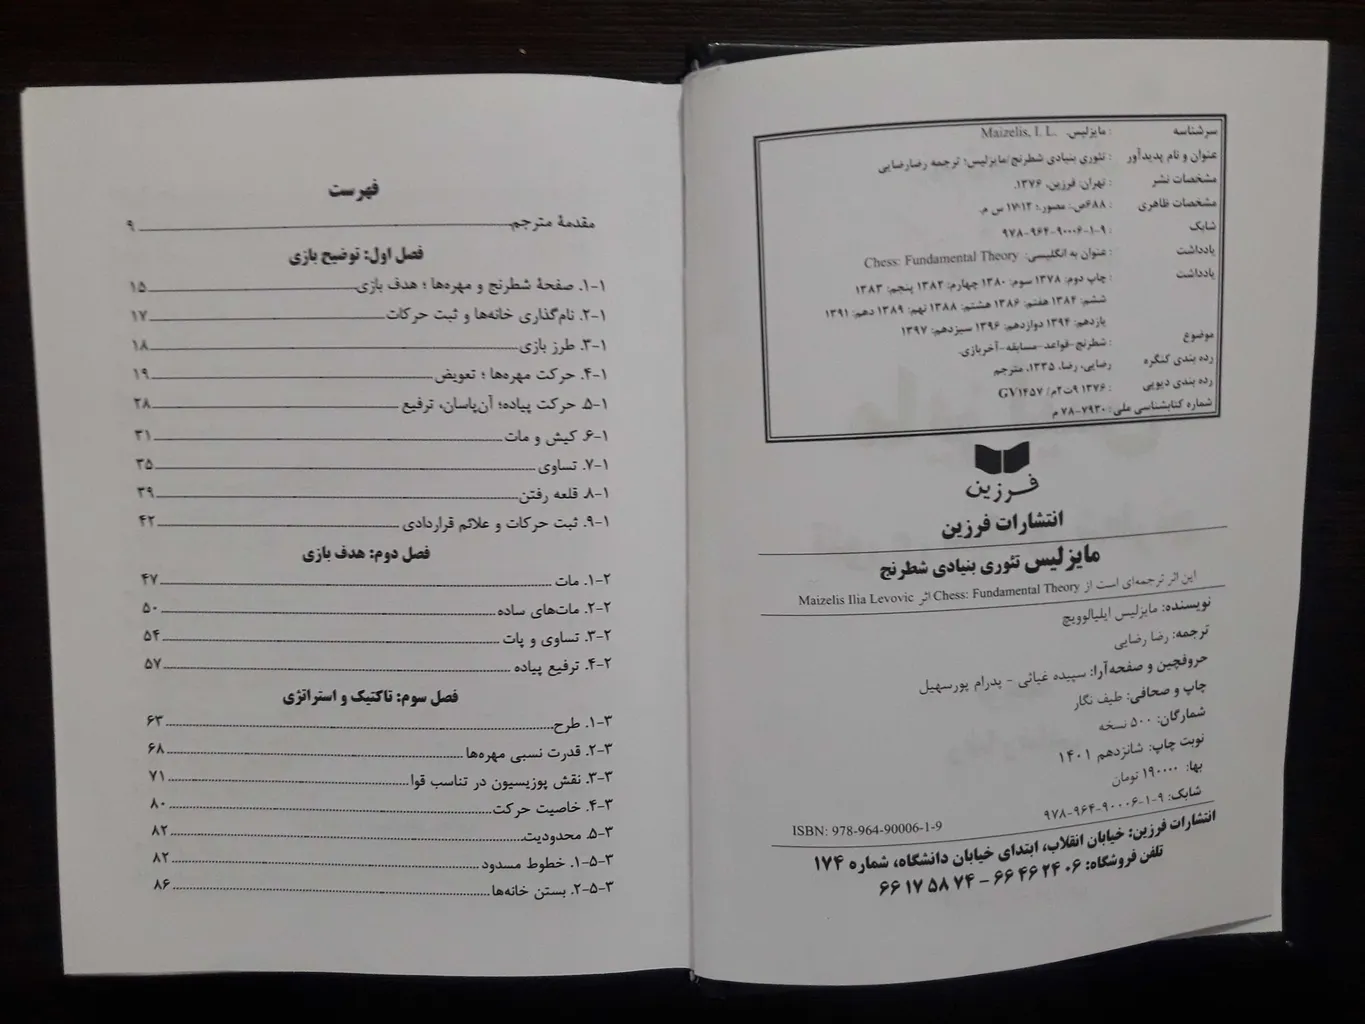 سرشناسه : مایزلیس، Maizelis, I. L.
عنوان و نام پدیدآور : تئوری بنیادی شطرنج/مایزلیس؛ ترجمه رضارضایی
مشخصات نشر : تهران: فرزین، ۱۳۷۶.
مشخصات ظاهری : ۶۸۸ص.: مصور.؛ ۱۲×۱۷ س م.
شابک : ۹۷۸-۹۶۴-۹۰۰۰۶-۱-۹
یادداشت : عنوان به انگلیسی: Chess: Fundamental Theory
یادداشت : چاپ دوم: ۱۳۷۸ سوم: ۱۳۸۰ چهارم: ۱۳۸۲ پنجم: ۱۳۸۳
ششم: ۱۳۸۴ هفتم: ۱۳۸۶ هشتم: ۱۳۸۸ نهم: ۱۳۸۹ دهم: ۱۳۹۱
یازدهم: ۱۳۹۴ دوازدهم: ۱۳۹۶ سیزدهم: ۱۳۹۷
موضوع : شطرنج-قواعد-مسابقه-آخربازی.
رده بندی کنگره رضایی، رضا، ۱۳۳۵، مترجم
رده بندی دیویی : ۱۳۷۶ ۹ت۲م/ GV۱۴۵۷
شماره کتابشناسی ملی: ۷۹۳۰-۷۸ م
فرزین
انتشارات فرزین
مایزلیس تئوری بنیادی شطرنج
این اثر ترجمه‌ای است از Chess: Fundamental Theory اثر Maizelis Ilia Levovic
نویسنده: مایزلیس ایلیالوویچ
ترجمه: رضا رضایی
حروفچین و صفحه‌آرا: سپیده غیاثی - پدرام پورسهیل
چاپ و صحافی: طیف نگار
شمارگان: ۵۰۰ نسخه
نوبت چاپ: شانزدهم ۱۴۰۱
بها: ۱۹۰۰۰۰ تومان
شابک: ۹-۱-۹۰۰۰۶-۹۶۴-۹۷۸ ISBN: 978-964-90006-1-9
انتشارات فرزین: خیابان انقلاب، ابتدای خیابان دانشگاه، شماره ۱۷۴
تلفن فروشگاه: ۰۶ ۲۴ ۴۶ ۶۶ - ۷۴ ۵۸ ۱۷ ۶۶
فهرست
مقدمهٔ مترجم ۹
فصل اول: توضیح بازی
۱-۱. صفحهٔ شطرنج و مهره‌ها؛ هدف بازی ۱۵
۲-۱. نام‌گذاری خانه‌ها و ثبت حرکات ۱۷
۳-۱. طرز بازی ۱۸
۴-۱. حرکت مهره‌ها؛ تعویض ۱۹
۵-۱. حرکت پیاده؛ آن‌پاسان، ترفیع ۲۸
۶-۱. کیش و مات ۳۱
۷-۱. تساوی ۳۵
۸-۱. قلعه رفتن ۳۹
۹-۱. ثبت حرکات و علائم قراردادی ۴۲
فصل دوم: هدف بازی
۱-۲. مات ۴۷
۲-۲. مات‌های ساده ۵۰
۳-۲. تساوی و پات ۵۴
۴-۲. ترفیع پیاده ۵۷
فصل سوم: تاکتیک و استراتژی
۱-۳. طرح ۶۳
۲-۳. قدرت نسبی مهره‌ها ۶۸
۳-۳. نقش پوزیسیون در تناسب قوا ۷۱
۴-۳. خاصیت حرکت ۸۰
۵-۳. محدودیت ۸۲
۱-۵-۳. خطوط مسدود ۸۲
۲-۵-۳. بستن خانه‌ها ۸۶